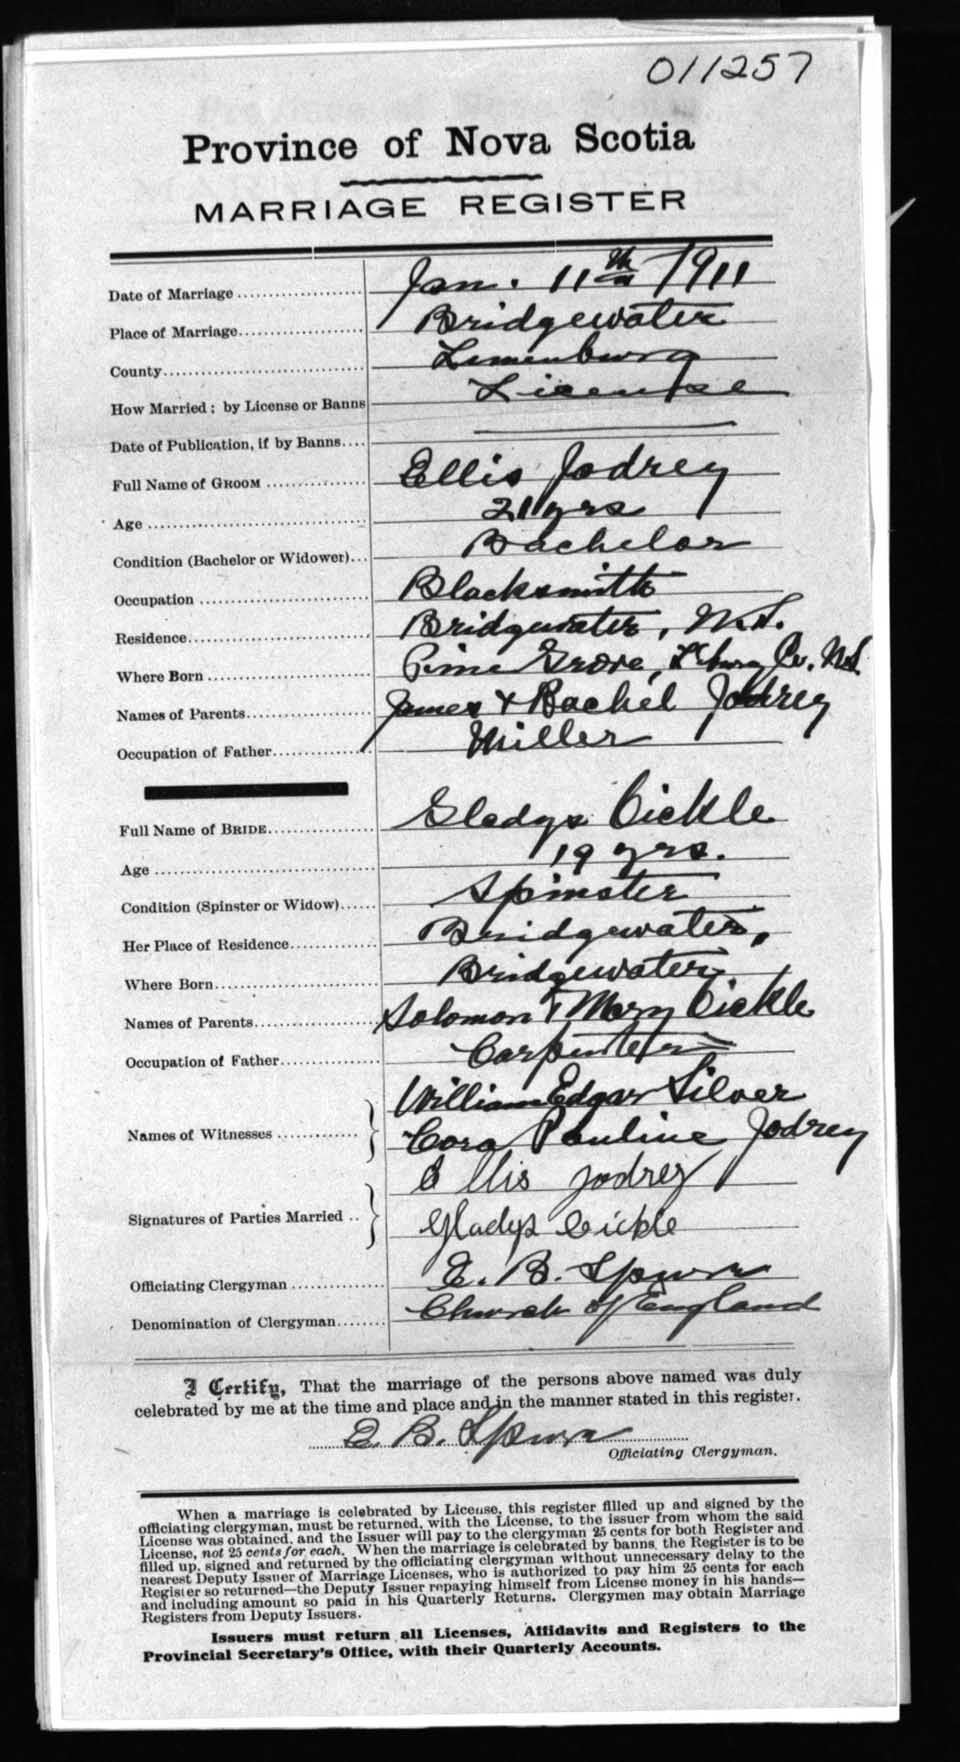 011257
Province of Nova Scotia
MARRIAGE REGISTER
Date of Marriage Jan. 11th 1911
Place of Marriage Bridgewater
County Lunenburg
How Married; by License or Banns License
Date of Publication, if by Banns
Full Name of GROOM Ellis Jodrey
Age 21 yrs
Condition (Bachelor or Widower) Bachelor
Occupation Blacksmith
Residence Bridgewater, N.S.
Where Born Pine Grove, L'burg Co. N.S.
Names of Parents James & Rachel Jodrey
Occupation of Father Miller
Full Name of BRIDE Gladys Oickle
Age 19 yrs.
Condition (Spinster or Widow) Spinster
Her Place of Residence Bridgewater,
Where Born Bridgewater,
Names of Parents Solomon & Mary Oickle
Occupation of Father Carpenter
Names of Witnesses William Edgar Silver
Cora Pauline Jodrey
Signatures of Parties Married Ellis Jodrey
Gladys Oickle
Officiating Clergyman E. B. Spurr
Denomination of Clergyman Church of England
I Certify, That the marriage of the persons above named was duly
celebrated by me at the time and place and in the manner stated in this register.
E. B. Spurr
Officiating Clergyman.
When a marriage is celebrated by License, this register filled up and signed by the
officiating clergyman, must be returned, with the License, to the issuer from whom the said
License was obtained, and the Issuer will pay to the clergyman 25 cents for both Register and
License, not 25 cents for each. When the marriage is celebrated by banns, the Register is to be
filled up, signed and returned by the officiating clergyman without unnecessary delay to the
nearest Deputy Issuer of Marriage Licenses, who is authorized to pay him 25 cents for each
Register so returned—the Deputy Issuer repaying himself from License money in his hands—
and including amount so paid in his Quarterly Returns. Clergymen may obtain Marriage
Registers from Deputy Issuers.
Issuers must return all Licenses, Affidavits and Registers to the
Provincial Secretary's Office, with their Quarterly Accounts.